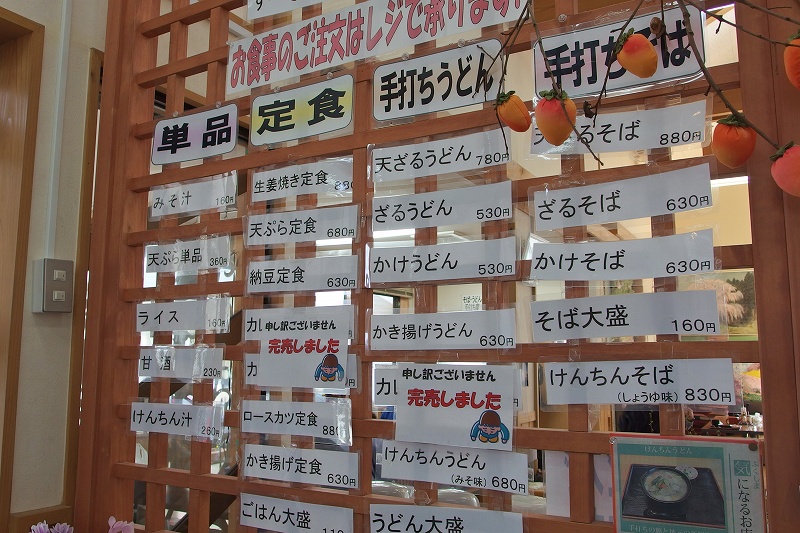 お食事のご注文はレジで承ります
単品
定食
手打ちうどん
手打ちそば
みそ汁 160円
天ぷら単品 360円
ライス 160円
甘酒 230円
けんちん汁 260円
生姜焼き定食 880
天ぷら定食 680円
納豆定食 630円
カレ
申し訳ございません
完売しました
カ
ロースカツ定食 880
かき揚げ定食 630円
ごはん大盛 110
天ざるうどん 780円
ざるうどん 530円
かけうどん 530円
かき揚げうどん 630円
カレ
申し訳ございません
完売しました
けんちんうどん
(みそ味) 680円
うどん大盛
天ざるそば 880円
ざるそば 630円
かけそば 630円
そば大盛 160円
けんちんそば
(しょうゆ味) 830円
けんちんうどん
気になるお店